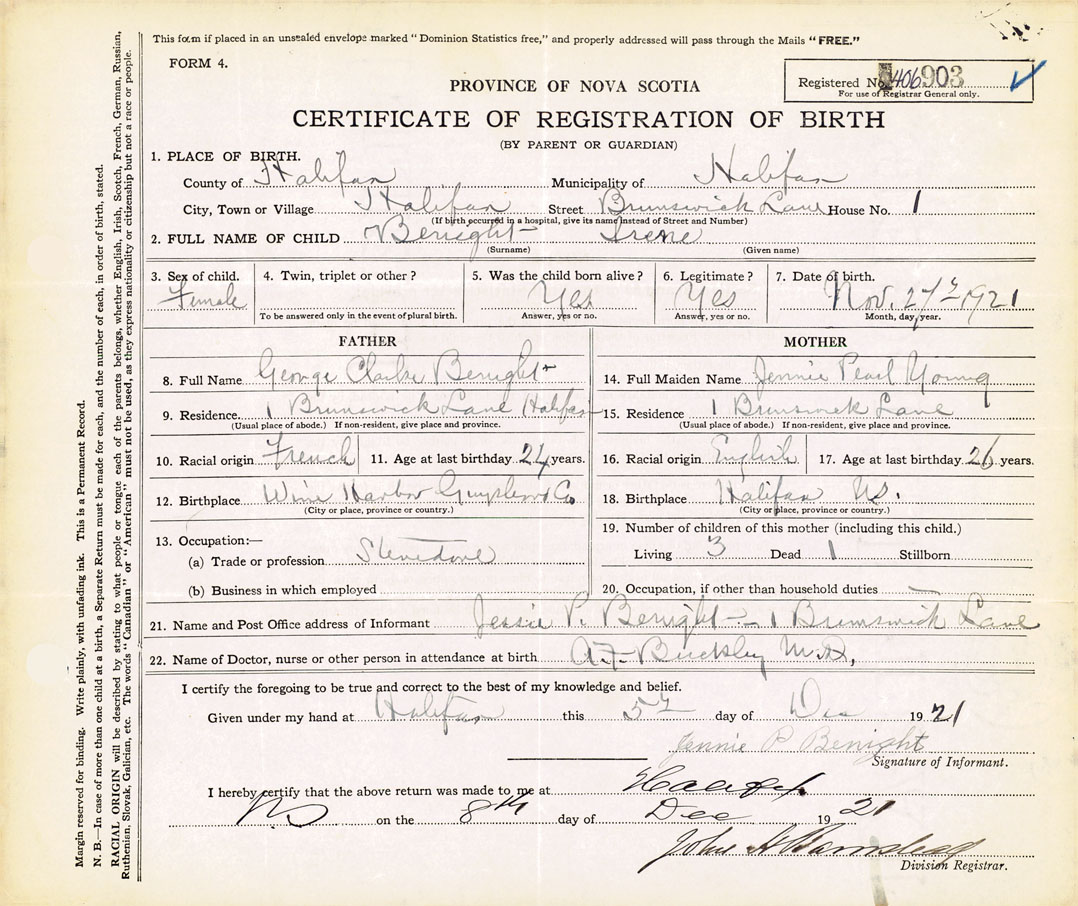 This form if placed in an unsealed envelope marked "Dominion Statistics free," and properly addressed will pass through the Mails "FREE."
FORM 4.
Registered No. 406903
For use of Registrar General only.
PROVINCE OF NOVA SCOTIA
CERTIFICATE OF REGISTRATION OF BIRTH
(BY PARENT OR GUARDIAN)
1. PLACE OF BIRTH.
County of Halifax Municipality of Halifax
City, Town or Village Halifax Street Brunswick Lane House No. 1
(If birth occurred in a hospital, give its name instead of Street and Number)
2. FULL NAME OF CHILD Benight Irene
(Surname) (Given name)
3. Sex of child. 4. Twin, triplet or other ? 5. Was the child born alive ? 6. Legitimate ? 7. Date of birth.
Female Yes Yes Nov. 27 1921
To be answered only in the event of plural birth. Answer, yes or no. Answer, yes or no. Month, day, year.
FATHER
8. Full Name George Clarke Benight
9. Residence. 1 Brunswick Lane Halifax
(Usual place of abode.) If non-resident, give place and province.
10. Racial origin French 11. Age at last birthday 24 years.
12. Birthplace Wine Harbor Guysboro Co
(City or place, province or country.)
13. Occupation:—
(a) Trade or profession Stevedore
(b) Business in which employed
MOTHER
14. Full Maiden Name Jennie Pearl Young
15. Residence 1 Brunswick Lane
(Usual place of abode.) If non-resident, give place and province.
16. Racial origin English 17. Age at last birthday 26 years.
18. Birthplace Halifax NS.
(City or place, province or country.)
19. Number of children of this mother (including this child.)
Living 3 Dead 1 Stillborn
20. Occupation, if other than household duties —
21. Name and Post Office address of Informant Jessie P. Benight — 1 Brunswick Lane
22. Name of Doctor, nurse or other person in attendance at birth A.F. Buckley M.D,
I certify the foregoing to be true and correct to the best of my knowledge and belief.
Given under my hand at Halifax this 5th day of Dec 1921
Jennie P Benight
Signature of Informant.
I hereby certify that the above return was made to me at Halifax
NS on the 8th day of Dec 1921
John A Barnstead
Division Registrar.
Margin reserved for binding. Write plainly, with unfading ink. This is a Permanent Record.
N. B.—In case of more than one child at a birth, a Separate Return must be made for each, and the number of each, in order of birth, stated.
RACIAL ORIGIN will be described by stating to what people or tongue each of the parents belongs, whether English, Irish, Scotch, French, German, Russian,
Ruthenian, Slovak, Galician, etc. The words "Canadian" or "American" must not be used, as they express nationality or citizenship but not a race or people.